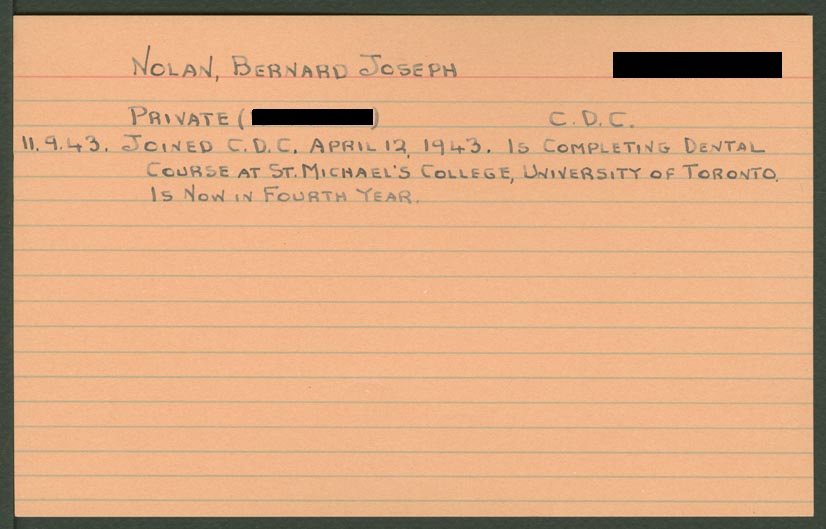 NOLAN, BERNARD JOSEPH
PRIVATE ( ) C.D.C.
11.9.43. JOINED C.D.C. APRIL 12, 1943. IS COMPLETING DENTAL
COURSE AT ST. MICHAEL'S COLLEGE, UNIVERSITY OF TORONTO.
IS NOW IN FOURTH YEAR.